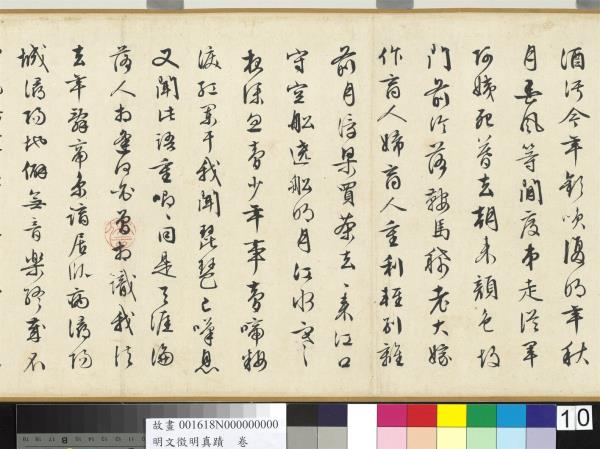 酒污今年歡笑復明年秋
月春風等閒度弟走從軍
阿姨死暮去朝來顏色故
門前冷落鞍馬稀老大嫁
作商人婦商人重利輕別離
前月浮梁買茶去々來江口
守空船遶船明月江水寒
夜深忽夢少年事夢啼妝
淚紅闌干我聞琵琶已嘆息
又聞此語重唧々同是天涯淪
落人相逢何必曾相識我從
去年辭帝京謫居臥病潯陽
城潯陽地僻無音樂終歲不
故畫 001618N000000000
明文徵明真蹟 卷
10